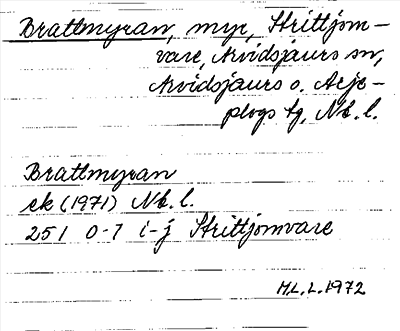 Brattmyran, myr, Strittjom-
vare, Arvidsjaurs sn,
Arvidsjaurs o. Arje-
plogs tg, Nb. l.
Brattmyran
ek (1971) Nb. l.
25 I 0-1 i-j Strittjomvare
H.L.L. 1972